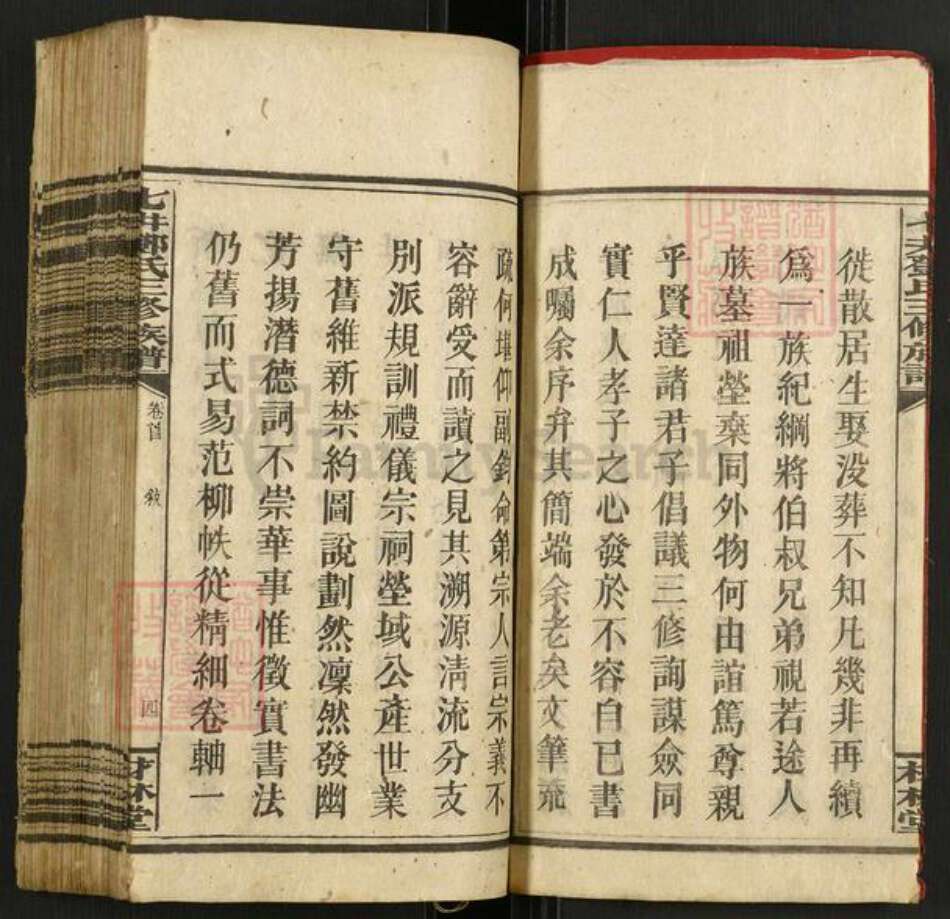 徙散居生娶没葬不知凡幾非再續
為一族紀綱將伯叔兄弟視若途人
族墓祖塋棄同外物何由誼篤尊親
乎賢達諸君子倡議三修詢謀僉同
實仁人孝子之心發於不容自已書
成囑余序弁其簡端余老矣文筆荒
疏何堪仰副鈞命第宗人言宗義不
容辭受而讀之見其溯源清流分支
別派規訓禮儀宗祠塋域公產世業
守舊維新禁約圖說劃然凜然發幽
芳揚潛德詞不崇華事惟徵實書法
仍舊而式易范柳帙從精細卷軸一
七井鄧氏三修族譜
卷首
敘
四
FamilySearch